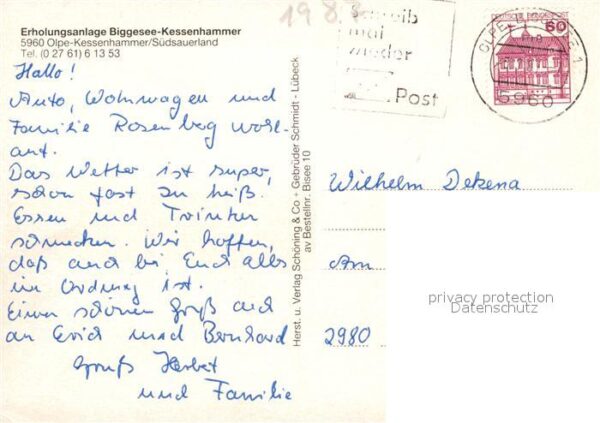 1983
Erholungsanlage Biggesee-Kessenhammer
5960 Olpe-Kessenhammer/Südsauerland
Tel. (0 27 61) 6 13 53
Hallo!
Auto, Wohnwagen und
Familie Rosenberg wohl-
auf.
Das Wetter ist super,
schon fast zu heiß.
Essen und Trinken
schmecken. Wir hoffen,
daß auch bei Euch alles
in Ordnung ist.
Einen schönen Gruß auch
an Erich und Bernhard
Gruß Herbert
und Familie
Herst. u. Verlag Schöning & Co + Gebrüder Schmidt - Lübeck
av Bestellnr. Bisee 10
Schreib
mal
wieder
Post
DEUTSCHE BUNDESPOST
60
OLPE
1
5960
Wilhelm Dekena
Am
2980
privacy protection
Datenschutz